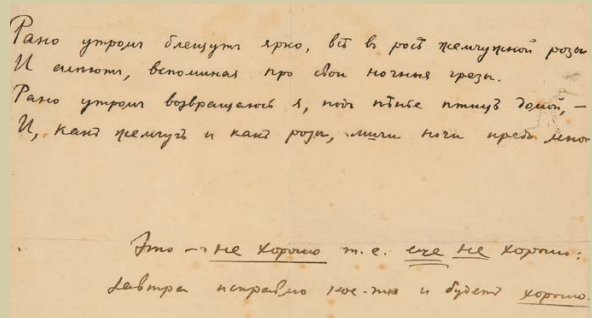 Рано утромъ блещутъ ярко, всѣ в росѣ жемчужной розы
И алѣютъ, вспоминая про свои ночныя грезы.
Рано утромъ возвращаюсь я, подъ пѣнье птицъ домой, –
И, какъ жемчугъ и какъ розы, ночи предъ мной
Это – не хорошо т.е. еще не хорошо:
Завтра исправлю кое-что и будетъ хорошо.